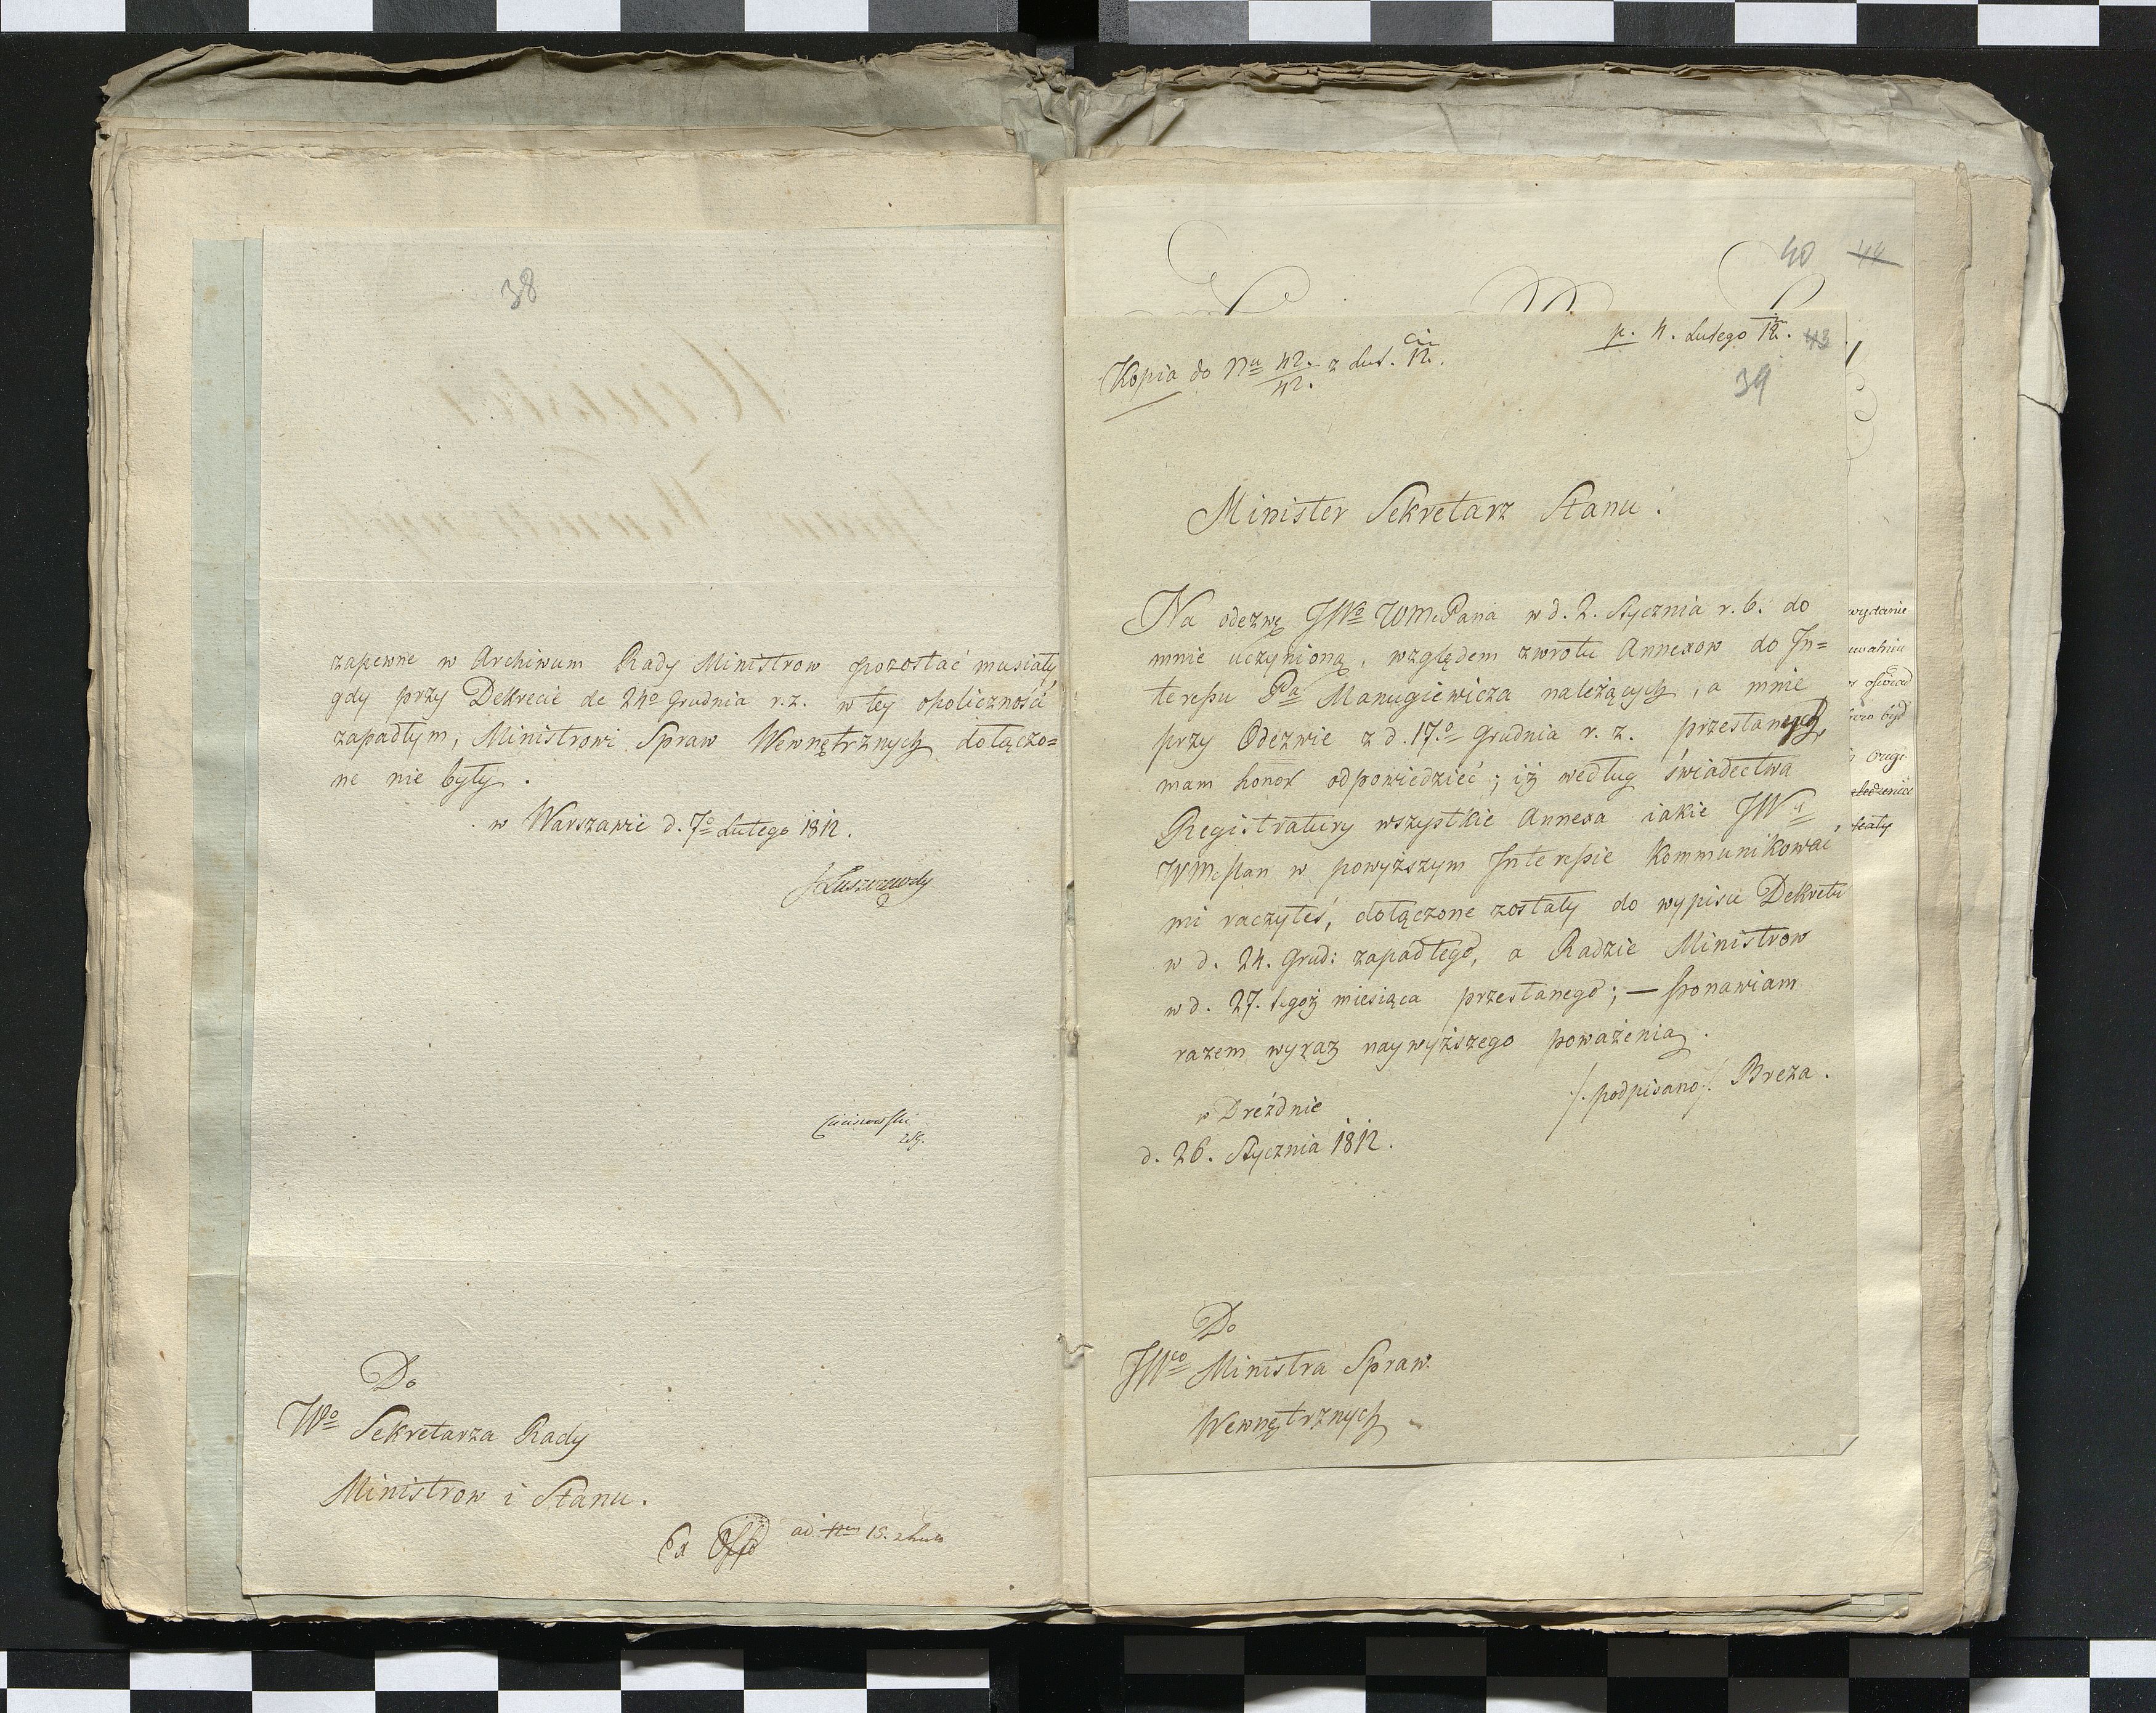 38
zapewne w Archiwum Rady Ministrow pozostać musiały,
gdy przy Dekrecie de 24º Grudnia r. z. w tey okoliczności
zapadłym, Ministrowi Spraw Wewnętrznych dołączo=
ne nie były.
w Warszawie d. 7º Lutego 1812.
Łuszczewsky
Do
Wº Sekretarza Rady
Ministrow i Stanu.
Ex Offo ad 15.
40 44
p. 4. Lutego 12. 43
Kopia do Nru 42./42. z Lut. 12.
39
Minister Sekretarz Stanu.
Na odezwę JWº WMcPana w d. 2. Stycznia r. b. do
mnie uczynioną, względem zwrotu Annexow do In=
teressu Pa Manugiewicza należących, a mnie
przy Odezwie z d. 17.º Grudnia r. z. przesłanych,
mam honor odpowiedzieć; iż według świadectwa
Registratury wszystkie Annexa iakie JWy
WMcPan w powyższym Interessie kommunikować
mi raczyłeś, dołączone zostały do wypisu Dekretu
w d. 24. Grud: zapadłego, a Radzie Ministrow
w d. 27. tegoż miesiąca przesłanego; — ponawiam
razem wyraz naywyższego poważenia.
/. podpisano ./ Breza.
w Dreźdnie
d. 26. Stycznia 1812.
Do
JWgo Ministra Spraw
Wewnętrznych